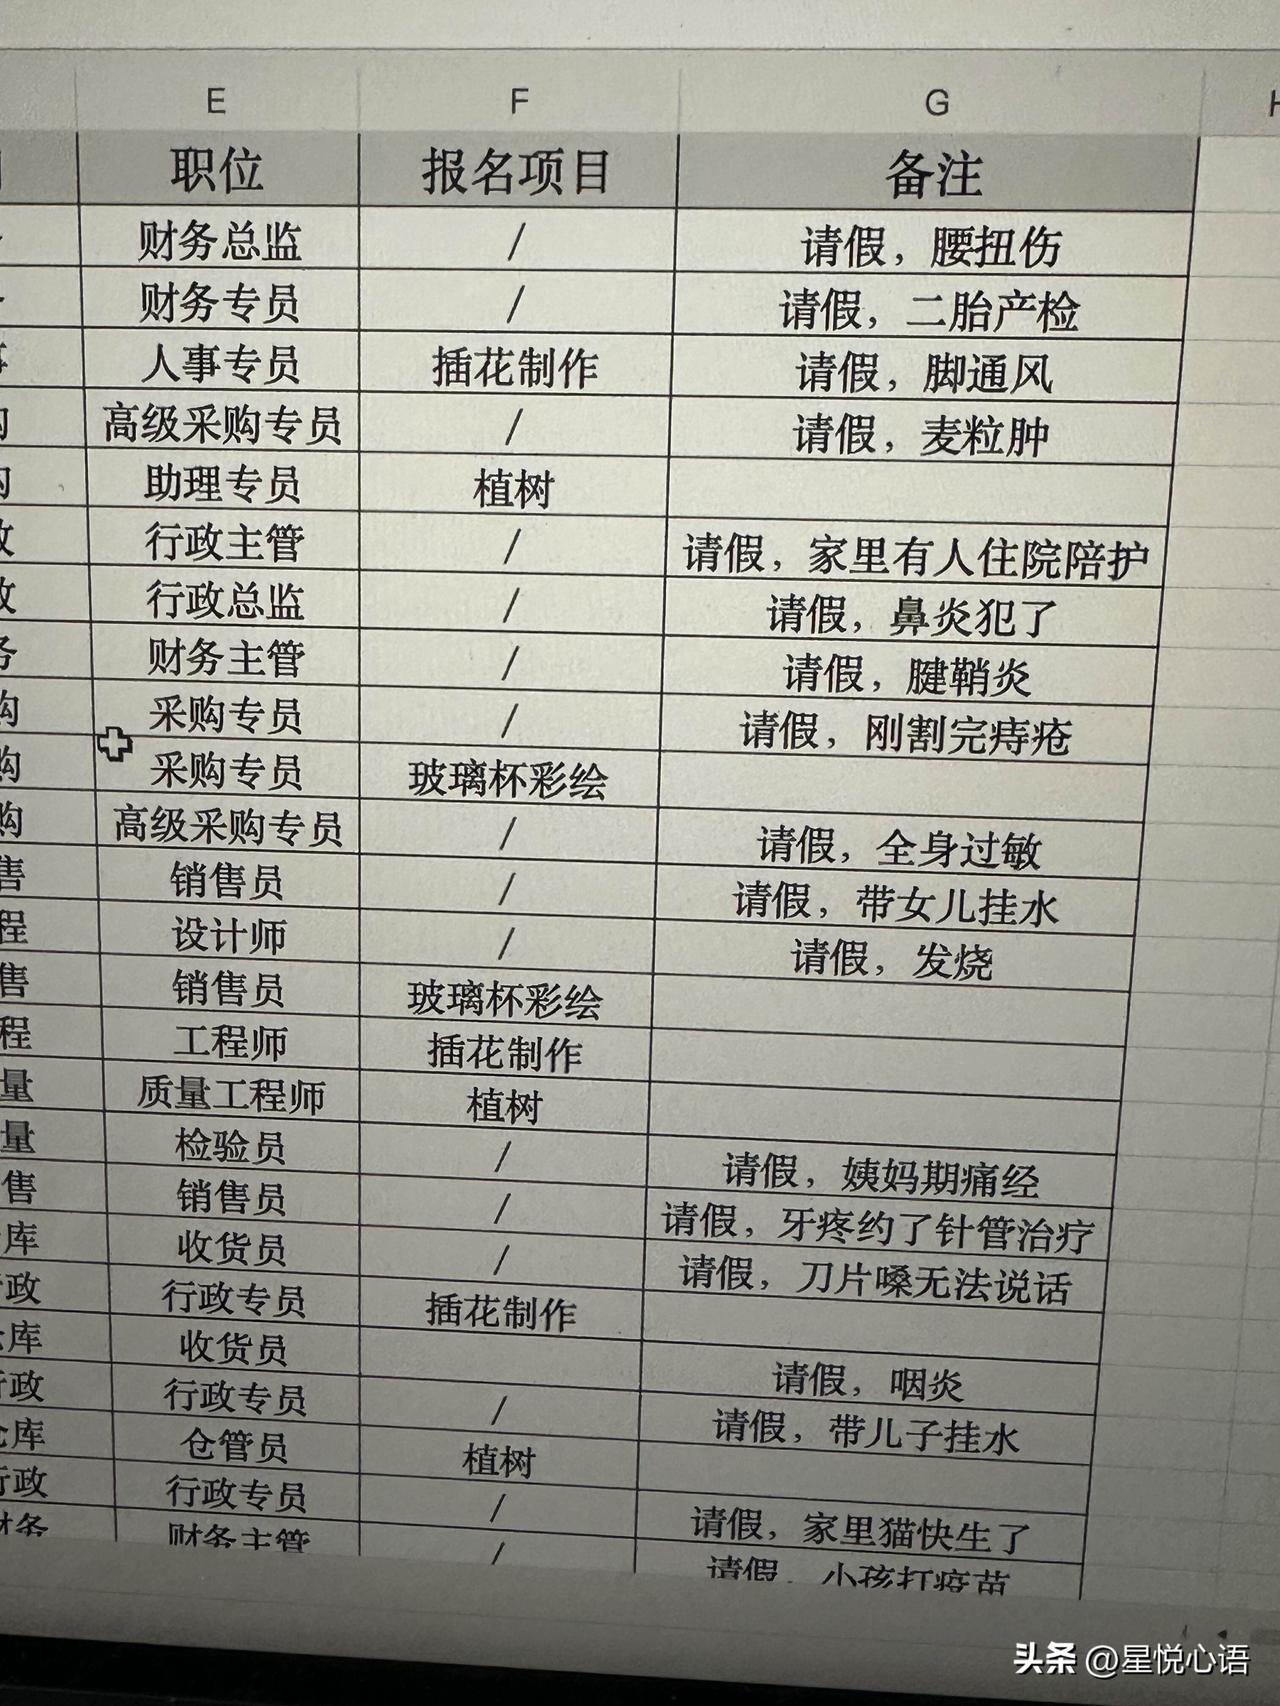 E F G
职位 报名项目 备注
财务总监 / 请假，腰扭伤
财务专员 / 请假，二胎产检
事 人事专员 插花制作 请假，脚通风
购 高级采购专员 / 请假，麦粒肿
购 助理专员 植树
政 行政主管 / 请假，家里有人住院陪护
政 行政总监 / 请假，鼻炎犯了
务 财务主管 / 请假，腱鞘炎
购 采购专员 / 请假，刚割完痔疮
购 采购专员 玻璃杯彩绘
购 高级采购专员 / 请假，全身过敏
售 销售员 / 请假，带女儿挂水
程 设计师 / 请假，发烧
售 销售员 玻璃杯彩绘
程 工程师 插花制作
量 质量工程师 植树
量 检验员 / 请假，姨妈期痛经
售 销售员 / 请假，牙疼约了针管治疗
库 收货员 / 请假，刀片嗓无法说话
政 行政专员 插花制作
库 收货员 请假，咽炎
政 行政专员 / 请假，带儿子挂水
仓库 仓管员 植树
行政 行政专员 / 请假，家里猫快生了
财务 财务主管 / 请假，小孩打疫苗
头条 @星悦心语